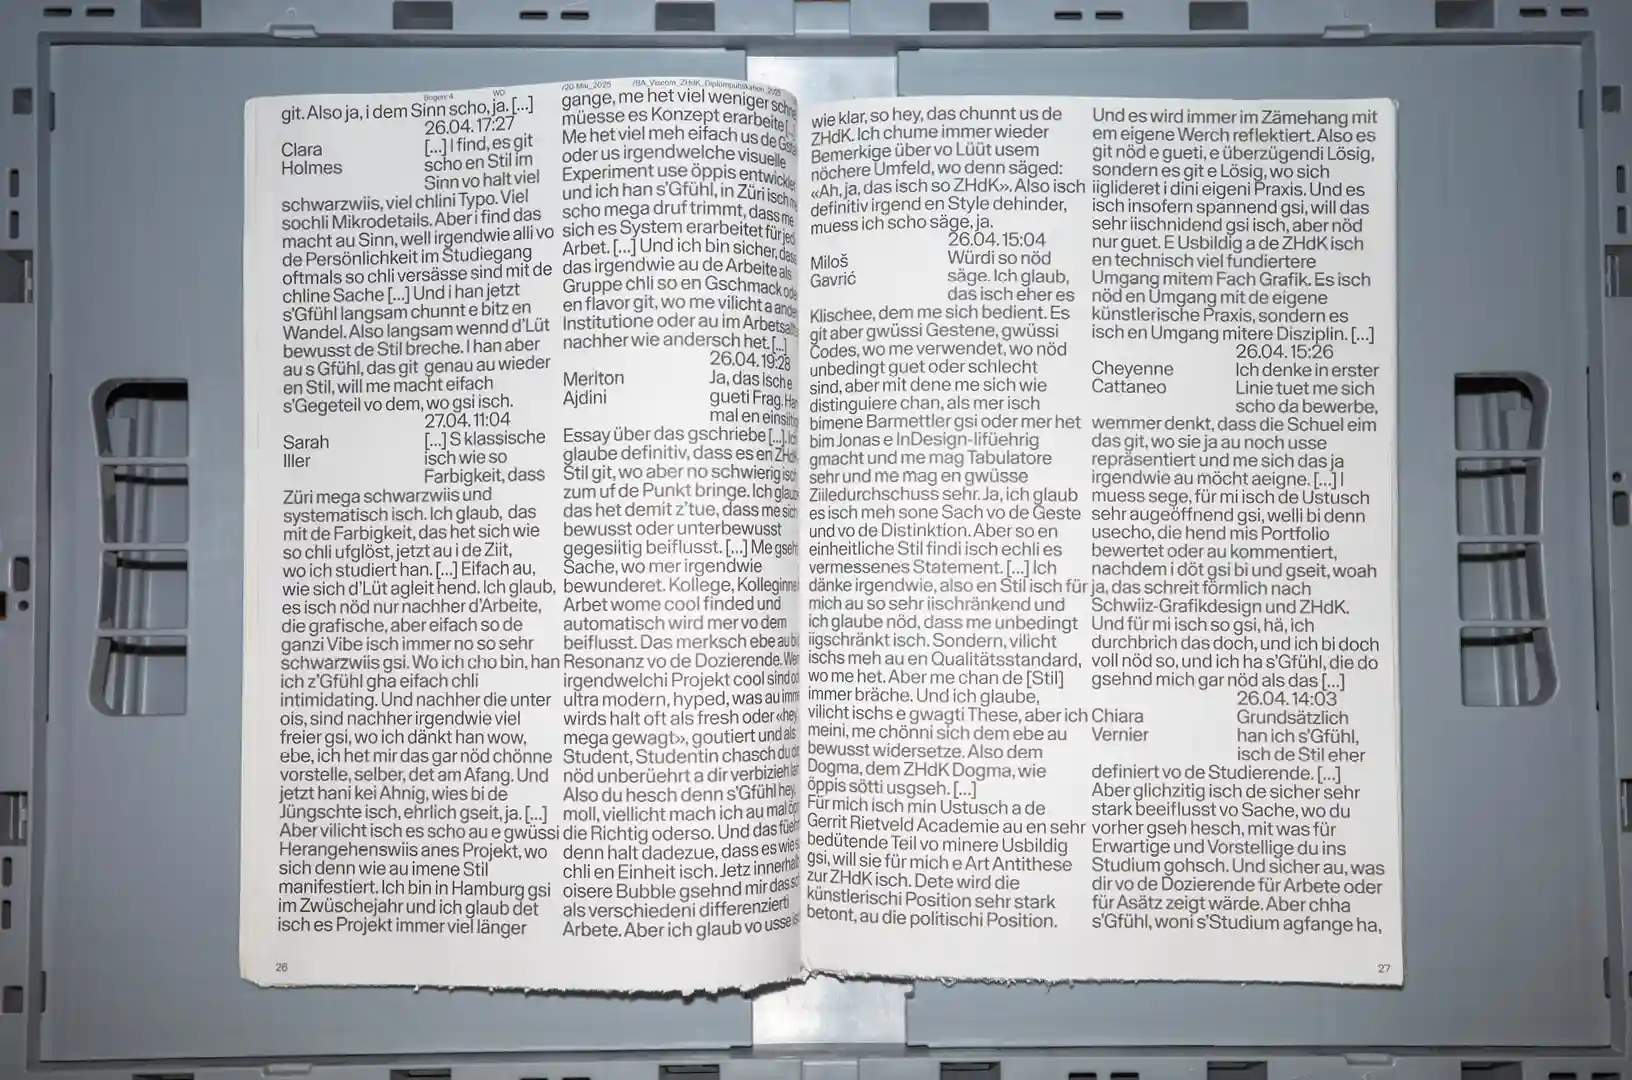 Bogen: 4
WD
/20 Mai_2025
/BA_Viscom_ZHdK_Diplompublikation_2025
git. Also ja, i dem Sinn scho, ja. […]
26.04. 17:27
Clara
Holmes
[…] I find, es git
scho en Stil im
Sinn vo halt viel
schwarzwiis, viel chlini Typo. Viel
sochli Mikrodetails. Aber i find das
macht au Sinn, well irgendwie alli vo
de Persönlichkeit im Studiegang
oftmals so chli versässe sind mit de
chline Sache […] Und i han jetzt
s’Gfühl langsam chunnt e bitz en
Wandel. Also langsam wennd d’Lüt
bewusst de Stil breche. I han aber
au s Gfühl, das git genau au wieder
en Stil, will me macht eifach
s’Gegeteil vo dem, wo gsi isch.
27.04. 11:04
Sarah
Iller
[…] S klassische
isch wie so
Farbigkeit, dass
Züri mega schwarzwiis und
systematisch isch. Ich glaub, das
mit de Farbigkeit, das het sich wie
so chli ufglöst, jetzt au i de Ziit,
wo ich studiert han. […] Eifach au,
wie sich d’Lüt agleit hend. Ich glaub,
es isch nöd nur nachher d’Arbeite,
die grafische, aber eifach so de
ganzi Vibe isch immer no so sehr
schwarzwiis gsi. Wo ich cho bin, han
ich z’Gfühl gha eifach chli
intimidating. Und nachher die unter
ois, sind nachher irgendwie viel
freier gsi, wo ich dänkt han wow,
ebe, ich het mir das gar nöd chönne
vorstelle, selber, det am Afang. Und
jetzt hani kei Ahnig, wies bi de
Jüngschte isch, ehrlich gseit, ja. […]
Aber vilicht isch es scho au e gwüssi
Herangehenswiis anes Projekt, wo
sich denn wie au imene Stil
manifestiert. Ich bin in Hamburg gsi
im Zwüschejahr und ich glaub det
isch es Projekt immer viel länger
26
gange, me het viel weniger schne
müesse es Konzept erarbeite […]
Me het viel meh eifach us de
oder us irgendwelche visuelle
Experiment use öppis entwickle
und ich han s’Gfühl, in Züri isch
scho mega druf trimmt, dass me
sich es System erarbeitet für jed
Arbet. […] Und ich bin sicher, dass
das irgendwie au de Arbeite als
Gruppe chli so en Gschmack ode
en flavor git, wo me vilicht a ande
Institutione oder au im Arbetsallt
nachher wie andersch het. […]
26.04. 19:28
Meriton
Ajdini
Ja, das isch e
gueti Frag. Han
mal en einsiitig
Essay über das gschriebe […]. Ich
glaube definitiv, dass es en ZHdK-
Stil git, wo aber no schwierig isch
zum uf de Punkt bringe. Ich glaub
das het demit z’tue, dass me sich
bewusst oder unterbewusst
gegesiitig beiflusst. […] Me gseht
Sache, wo mer irgendwie
bewunderet. Kollege, Kolleginne
Arbet wome cool finded und
automatisch wird mer vo dem
beiflusst. Das merksch ebe au bi
Resonanz vo de Dozierende. Wen
irgendwelchi Projekt cool sind od
ultra modern, hyped, was au imm
wirds halt oft als fresh oder «hey
mega gewagt», goutiert und als
Student, Studentin chasch du di
nöd unberüehrt a dir verbizieh lah
Also du hesch denn s’Gfühl hey,
moll, viellicht mach ich au mal öpp
die Richtig oder so. Und das füehrt
denn halt dadezue, dass es wie s
chli en Einheit isch. Jetz innerhalb
oisere Bubble gsehnd mir das scho
als verschiedeni differenzierti
Arbete. Aber ich glaub vo usse ist
wie klar, so hey, das chunnt us de
ZHdK. Ich chume immer wieder
Bemerkige über vo Lüüt usem
nöchere Umfeld, wo denn säged:
«Ah, ja, das isch so ZHdK». Also isch
definitiv irgend en Style dehinder,
muess ich scho säge, ja.
26.04. 15:04
Miloš
Gavrić
Würdi so nöd
säge. Ich glaub,
das isch eher es
Klischee, dem me sich bedient. Es
git aber gwüssi Gestene, gwüssi
Codes, wo me verwendet, wo nöd
unbedingt guet oder schlecht
sind, aber mit dene me sich wie
distinguiere chan, als mer isch
bimene Barmettler gsi oder mer het
bim Jonas e InDesign-Iifüehrig
gmacht und me mag Tabulatore
sehr und me mag en gwüsse
Ziiledurchschuss sehr. Ja, ich glaub
es isch meh sone Sach vo de Geste
und vo de Distinktion. Aber so en
einheitliche Stil findi isch echli es
vermessenes Statement. […] Ich
dänke irgendwie, also en Stil isch für
mich au so sehr iischränkend und
ich glaube nöd, dass me unbedingt
iigschränkt isch. Sondern, vilicht
ischs meh au en Qualitätsstandard,
wo me het. Aber me chan de [Stil]
immer bräche. Und ich glaube,
vilicht ischs e gwagti These, aber ich
meini, me chönni sich dem ebe au
bewusst widersetze. Also dem
Dogma, dem ZHdK Dogma, wie
öppis sötti usgseh. […]
Für mich isch min Ustusch a de
Gerrit Rietveld Academie au en sehr
bedütende Teil vo minere Usbildig
gsi, will sie für mich e Art Antithese
zur ZHdK isch. Dete wird die
künstlerischi Position sehr stark
betont, au die politischi Position.
Und es wird immer im Zämehang mit
em eigene Werch reflektiert. Also es
git nöd e gueti, e überzügendi Lösig,
sondern es git e Lösig, wo sich
iiglideret i dini eigeni Praxis. Und es
isch insofern spannend gsi, will das
sehr iischnidend gsi isch, aber nöd
nur guet. E Usbildig a de ZHdK isch
en technisch viel fundiertere
Umgang mitem Fach Grafik. Es isch
nöd en Umgang mit de eigene
künstlerische Praxis, sondern es
isch en Umgang mitere Disziplin. […]
26.04. 15:26
Cheyenne
Cattaneo
Ich denke in erster
Linie tuet me sich
scho da bewerbe,
wemmer denkt, dass die Schuel eim
das git, wo sie ja au noch usse
repräsentiert und me sich das ja
irgendwie au möcht aeigne. […] I
muess sege, für mi isch de Ustusch
sehr augeöffnend gsi, welli bi denn
usecho, die hend mis Portfolio
bewertet oder au kommentiert,
nachdem i döt gsi bi und gseit, woah
ja, das schreit förmlich nach
Schwiiz-Grafikdesign und ZHdK.
Und für mi isch so gsi, hä, ich
durchbrich das doch, und ich bi doch
voll nöd so, und ich ha s’Gfühl, die do
gsehnd mich gar nöd als das […]
26.04. 14:03
Chiara
Vernier
Grundsätzlich
han ich s’Gfühl,
isch de Stil eher
definiert vo de Studierende. […]
Aber glichzitig isch de sicher sehr
stark beeiflusst vo Sache, wo du
vorher gseh hesch, mit was für
Erwartige und Vorstellige du ins
Studium gohsch. Und sicher au, was
dir vo de Dozierende für Arbete oder
für Asätz zeigt wärde. Aber chha
s’Gfühl, woni s’Studium agfange ha,
27